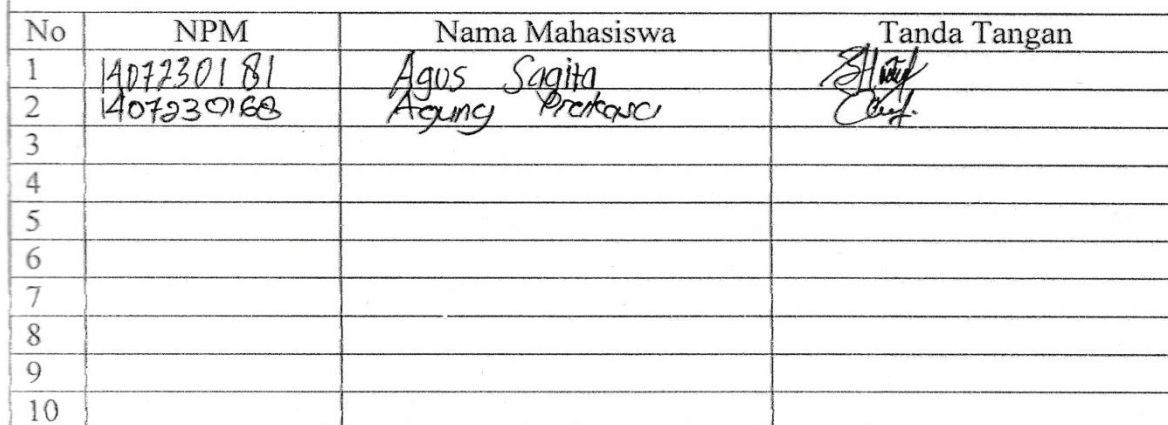 No NPM Nama Mahasiswa Tanda Tangan
1 1407230181 Agus Sagita
2 1407230168 Agung Prakasa
3
4
5
6
7
8
9
10